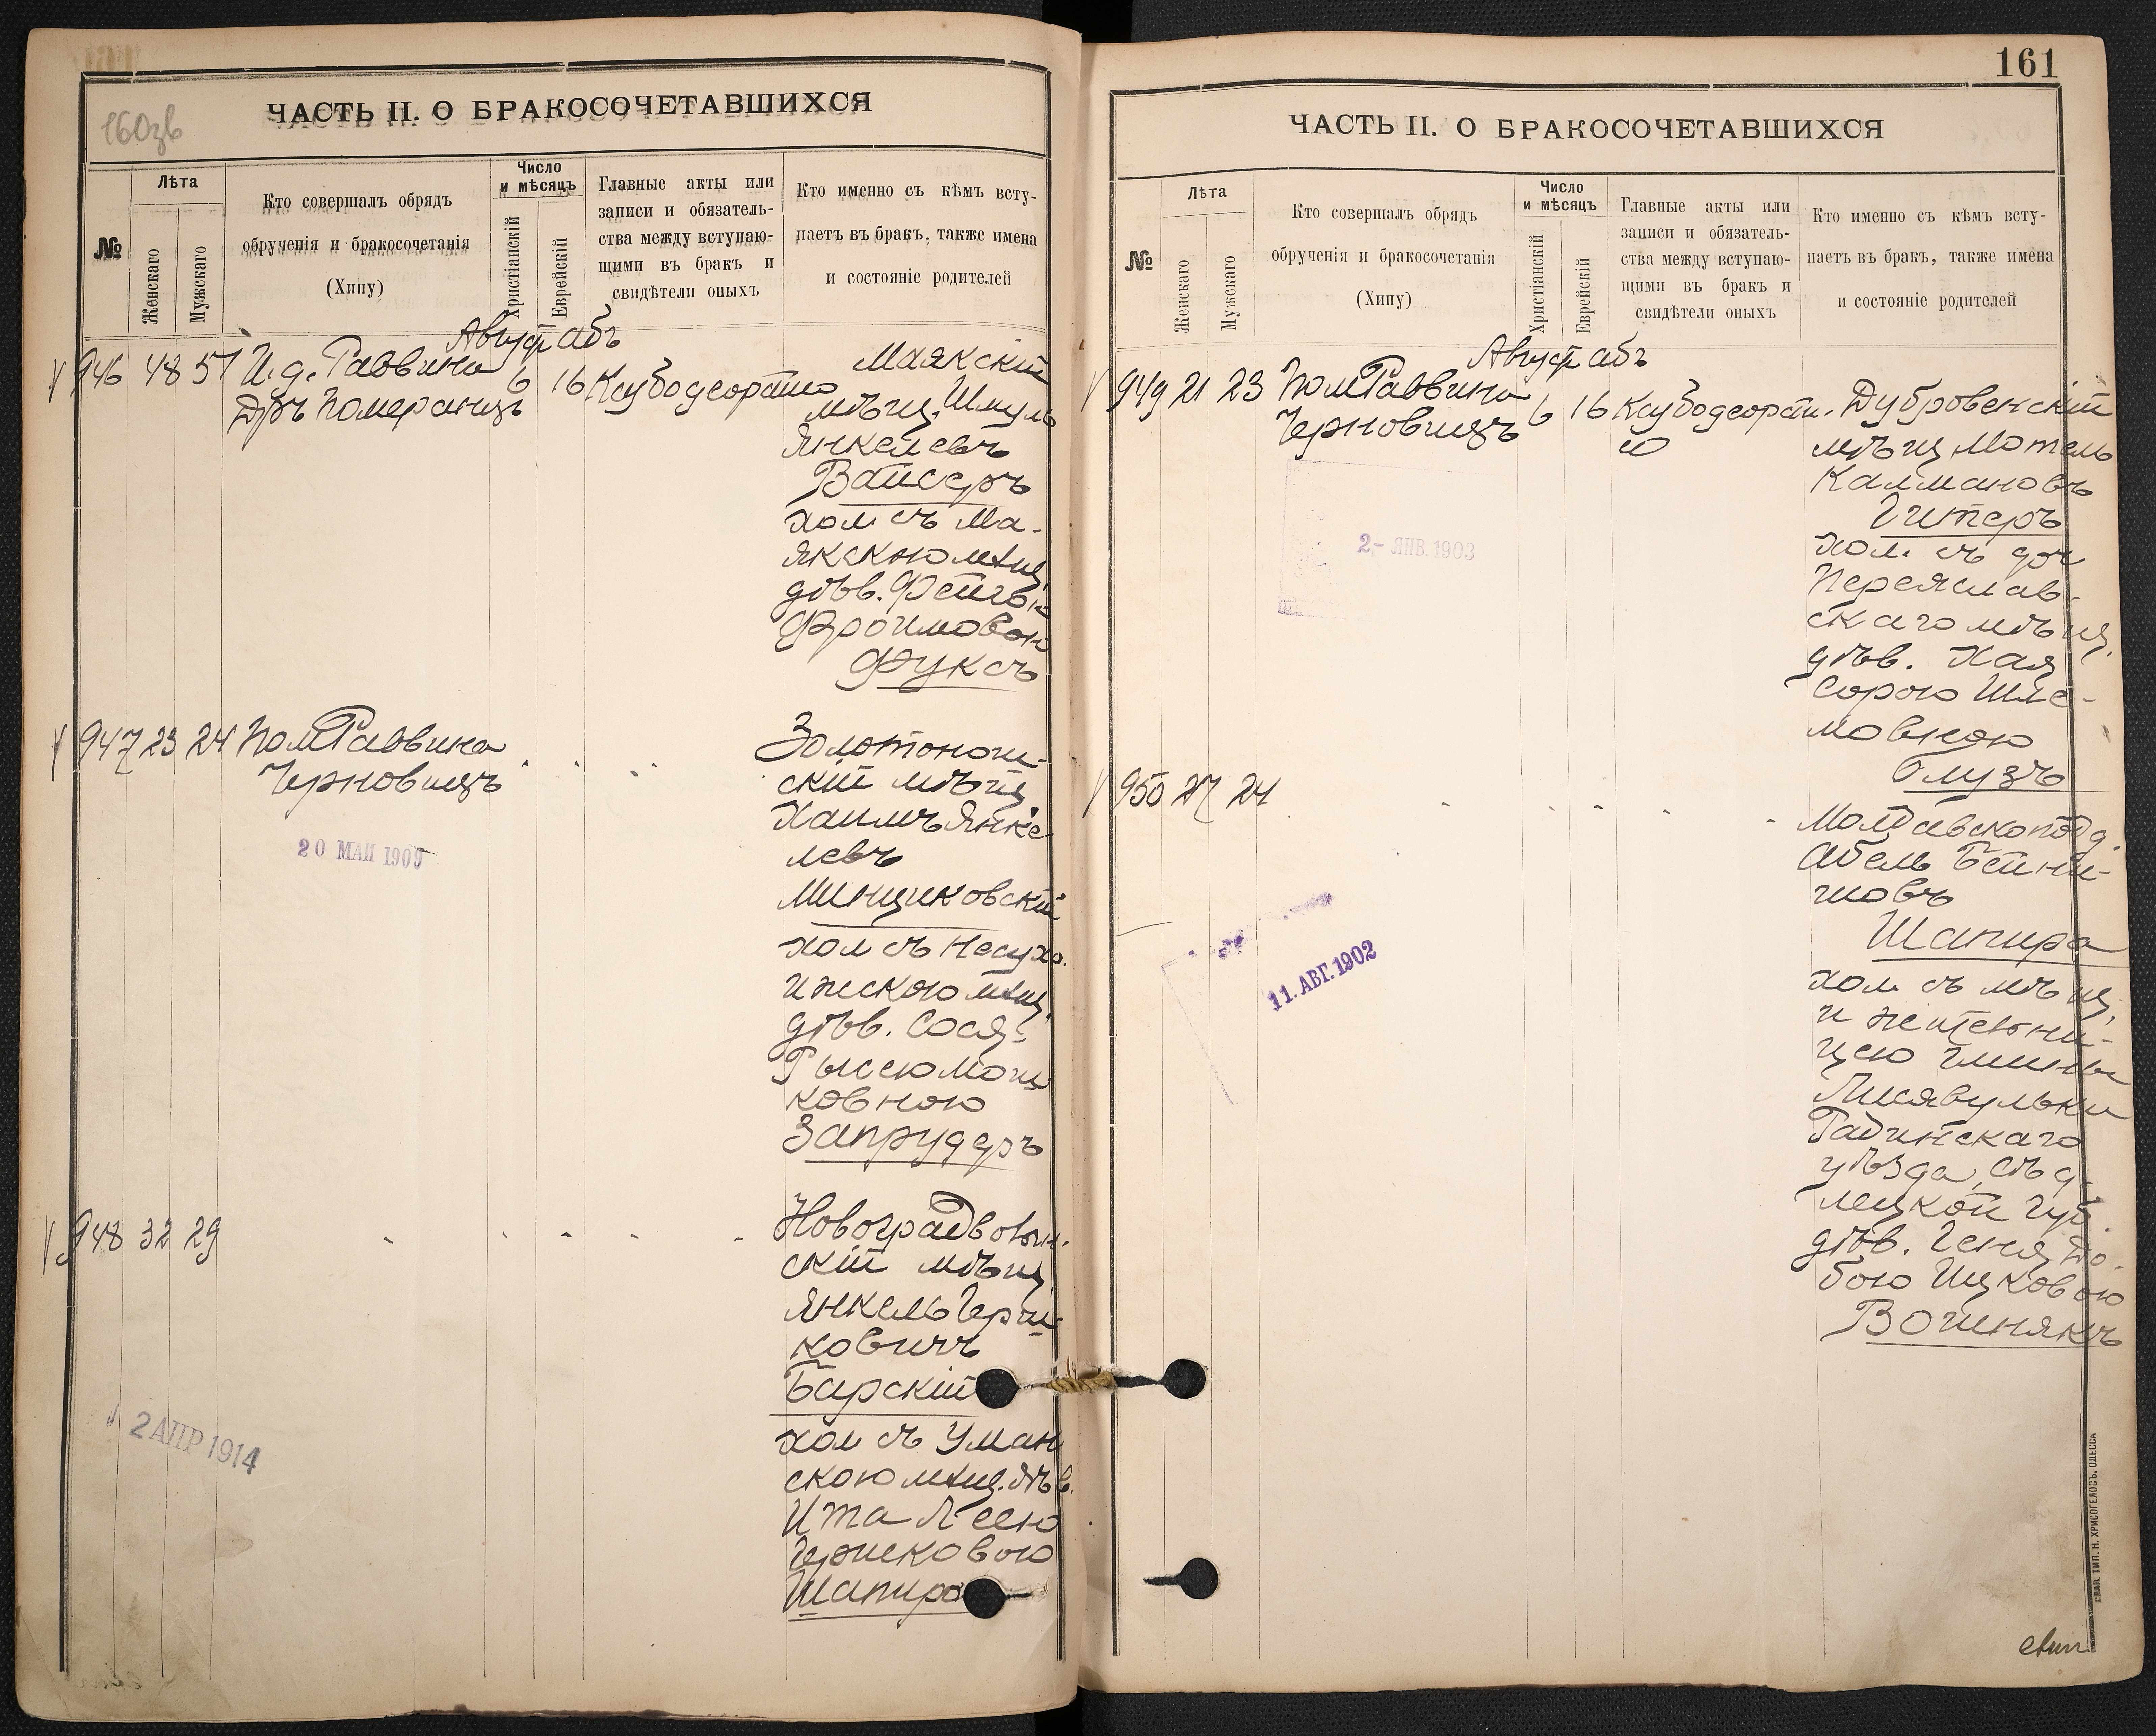 160зв
ЧАСТЬ II. О БРАКОСОЧЕТАВШИХСЯ
№
Лѣта
Женскаго
Мужскаго
Кто совершалъ обрядъ
обрученія и бракосочетанія
(Хипу)
Число
и мѣсяцъ
Христіанскій
Еврейскій
Главные акты или
записи и обязатель-
ства между вступаю-
щими въ бракъ и
свидѣтели оныхъ
Кто именно съ кѣмъ всту-
паетъ въ бракъ, также имена
и состояніе родителей
Август Абъ
946 48 51 И. д. Раввина 6 16
Дръ Померанцъ
Маякскій
мѣщ. Шмуль
Янкелевъ
Вайсеръ
хол. съ Ма-
якскою мѣщ.
дѣв. Фейгою
Фроимовою
Фуксъ
947 23 24 Пом Раввина
Черновицъ
20 МАЙ 1909
Золотонош-
скій мѣщ
Хаимъ Янке-
левъ
Минциковскій
хол съ Несухо-
ижескою мѣщ.
дѣв. Сося-
Рысею Мош-
ковною
Запрудеръ
948 32 29
2 АПР 1914
Новоградволын-
скій мѣщ
Янкель Герш-
ковичъ
Барскій
хол съ Уман
скою мѣщ. дѣв.
Ита Леею
Гершковою
Шапиро
161
ЧАСТЬ II. О БРАКОСОЧЕТАВШИХСЯ
№
Лѣта
Женскаго
Мужскаго
Кто совершалъ обрядъ
обрученія и бракосочетанія
(Хипу)
Число
и мѣсяцъ
Христіанскій
Еврейскій
Главные акты или
записи и обязатель-
ства между вступаю-
щими въ бракъ и
свидѣтели оныхъ
Кто именно съ кѣмъ всту-
паетъ въ бракъ, также имена
и состояніе родителей
Август Абъ
949 21 23 Пом Раввина 6 16
Черновицъ
2- ЯНВ. 1903
Дубровенскій
мѣщ Мотель
Калмановъ
Гитеръ
хол. съ доч
Переяслав-
скаго мѣщ.
дѣв. Хая
Сорою Шле-
мовною
Глузъ
950 27 24
11. АВГ. 1902
Молдавскопод д.
Абель Бейни-
шовъ
Шапира
хол. съ мѣщ.
и жительни-
цею гмины
Лисявульки
Радинскаго
уѣзда, Сѣд-
лецкой губ.
дѣв. Геня До-
бою Ицковою
Вошнякъ
ЕВАЛ. ТИП. Н. ХРИСОГЕЛОСЪ. ОДЕССА